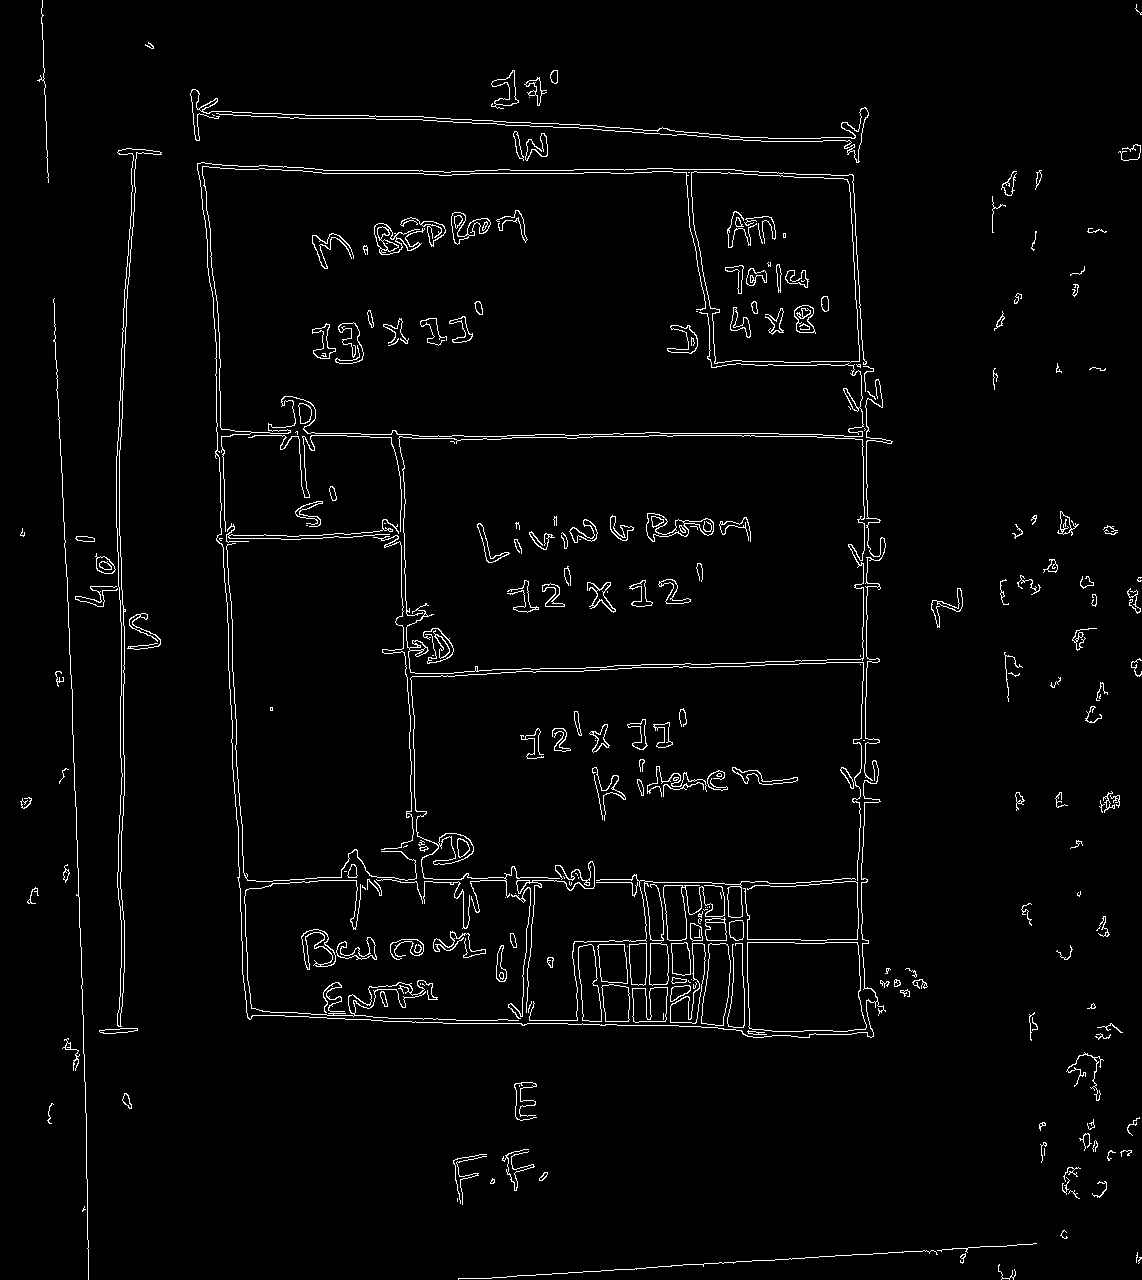 17'
W
M. BED Room
13' X 11'
Att.
Toilet
4' X 8'
D
W
D
5'
40'
S
Living Room
12' X 12'
W
N
D
12' X 11'
Kitchen
W
D
W
Balcony
6'
ENTRY
E
F.F.